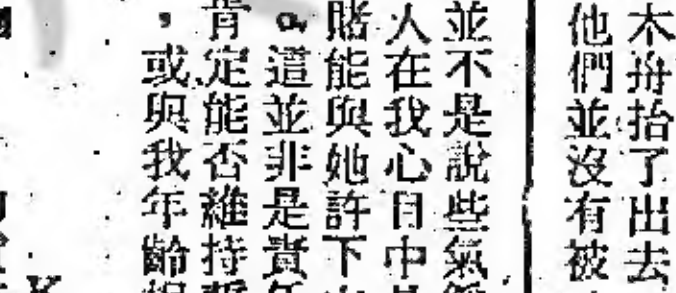 木拚抬了出去
他們並沒有被
並不是說些氣
人在我心目中
賭能與她許下
。道並非是責
肯定能否維持
，或與我年齡